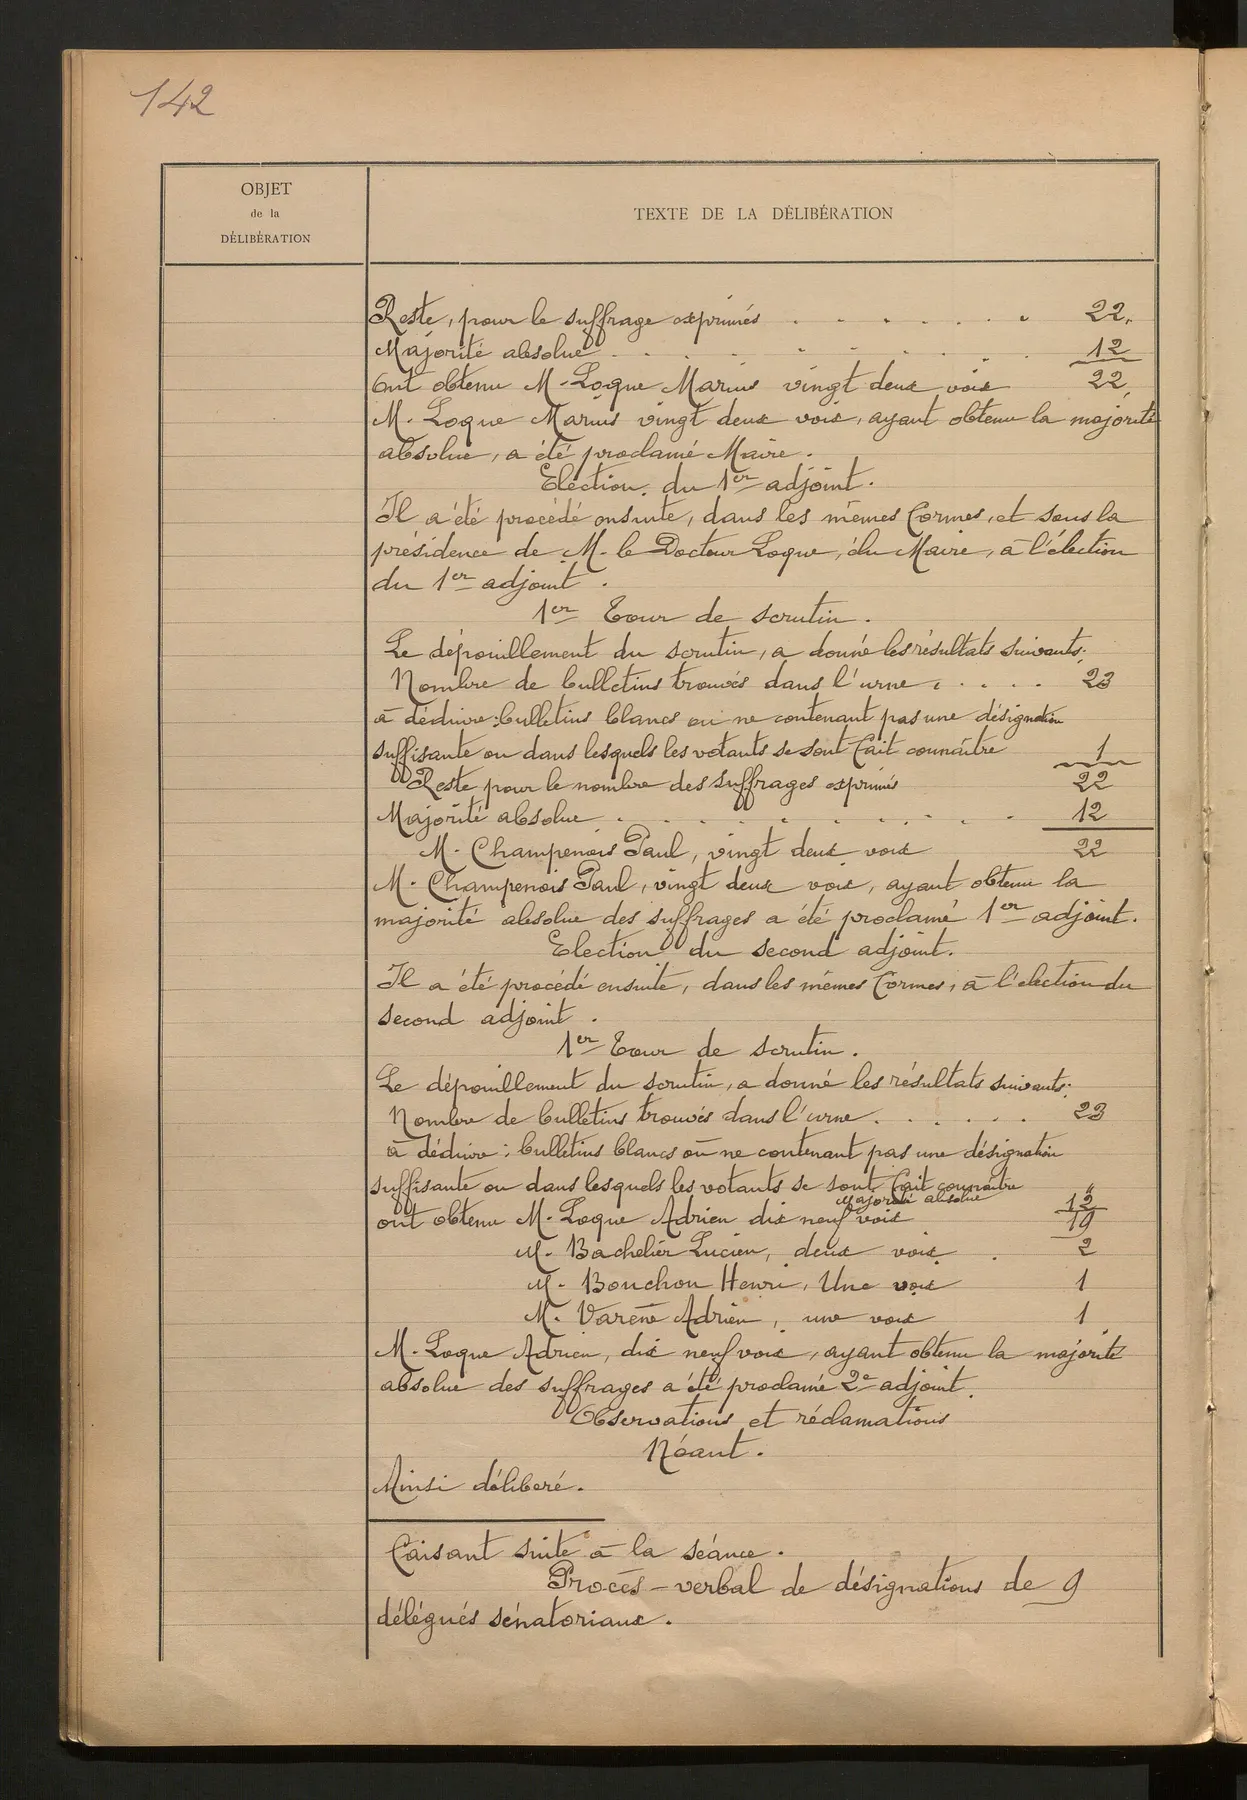 142
OBJET
de la
DÉLIBÉRATION
TEXTE DE LA DÉLIBÉRATION
Reste, pour le suffrage exprimés . . . . . . . 22.
Majorité absolue . . . . . . . . 12
Ont obtenu M. Loque Marius vingt deux voix 22
M. Loque Marius vingt deux voix, ayant obtenu la majorité
absolue, a été proclamé Maire.
Election du 1er adjoint.
Il a été procédé ensuite, dans les mêmes formes, et sous la
présidence de M. le Docteur Loque, élu Maire, à l'élection
du 1er adjoint.
1er Tour de scrutin.
Le dépouillement du scrutin, a donné les résultats suivants:
Nombre de bulletins trouvés dans l'urne . . . . . 23
à déduire: bulletins blancs ou ne contenant pas une désignation
suffisante ou dans lesquels les votants se sont fait connaître 1
Reste pour le nombre des suffrages exprimés 22
Majorité absolue . . . . . . . . . . . 12
M. Champenois Paul, vingt deux voix 22
M. Champenois Paul, vingt deux voix, ayant obtenu la
majorité absolue des suffrages a été proclamé 1er adjoint.
Election du second adjoint.
Il a été procédé ensuite, dans les mêmes formes, à l'élection du
second adjoint.
1er Tour de scrutin.
Le dépouillement du scrutin, a donné les résultats suivants:
Nombre de bulletins trouvés dans l'urne . . . . . . 23
à déduire: bulletins blancs ou ne contenant pas une désignation
suffisante ou dans lesquels les votants se sont fait connaître "
Majorité absolue 12
ont obtenu M. Loque Adrien dix neuf voix 19
M. Bachelier Lucien, deux voix . 2
M. Bouchon Henri, Une voix 1
M. Varène Adrien, une voix 1
M. Loque Adrien, dix neuf voix, ayant obtenu la majorité
absolue des suffrages a été proclamé 2e adjoint.
Observations et réclamations
Néant.
Ainsi délibéré.
Faisant suite à la séance.
Procès-verbal de désignations de 9
délégués sénatoriaux.